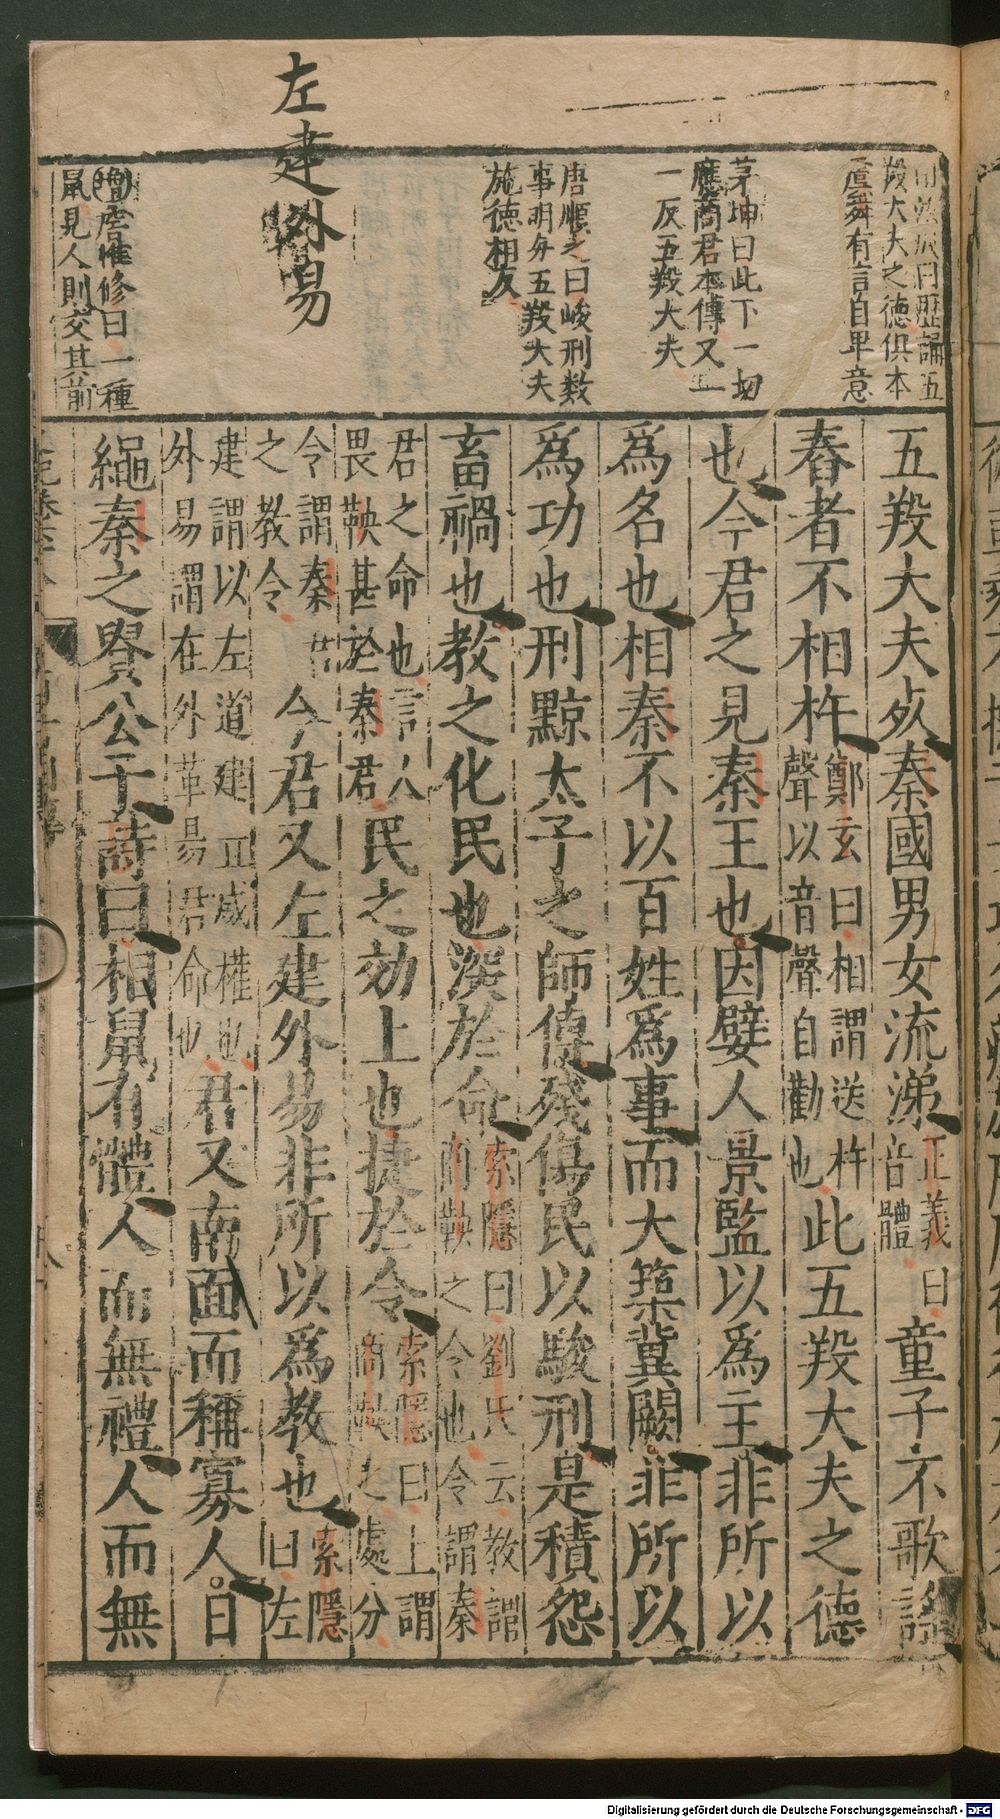 左建外易
曰歷論五
羖大夫之德俱本
虞舜有言自卑意
茅坤曰此下一切
應商君本傳又一
一反五羖大夫
唐順之曰峻刑数
事明與五羖大夫
施德相友
惟修曰一種
鼠見人則交其前
五羖大夫死秦國男女流涕正義曰音體童子不歌謠
舂者不相杵鄭玄曰相謂送杵聲以音聲自勸也此五羖大夫之德
也今君之見秦王也因嬖人景監以為主非所以
為名也相秦不以百姓為事而大築冀闕非所以
為功也刑黥太子之師傅殘傷民以駿刑是積怨
畜禍也教之化民也深於命索隱曰劉氏云教謂商鞅之令也令謂秦
君之命也言人畏鞅甚於秦君民之効上也捷於令索隱曰上謂商鞅之處分
令謂秦君之教令今君又左建外易非所以為教也索隱曰左
建謂以左道建立威權也外易謂在外革易君命也君又南面而稱寡人日
繩秦之貴公子詩曰相鼠有體人而無禮人而無
Digitalisierung gefördert durch die Deutsche Forschungsgemeinschaft - DFG